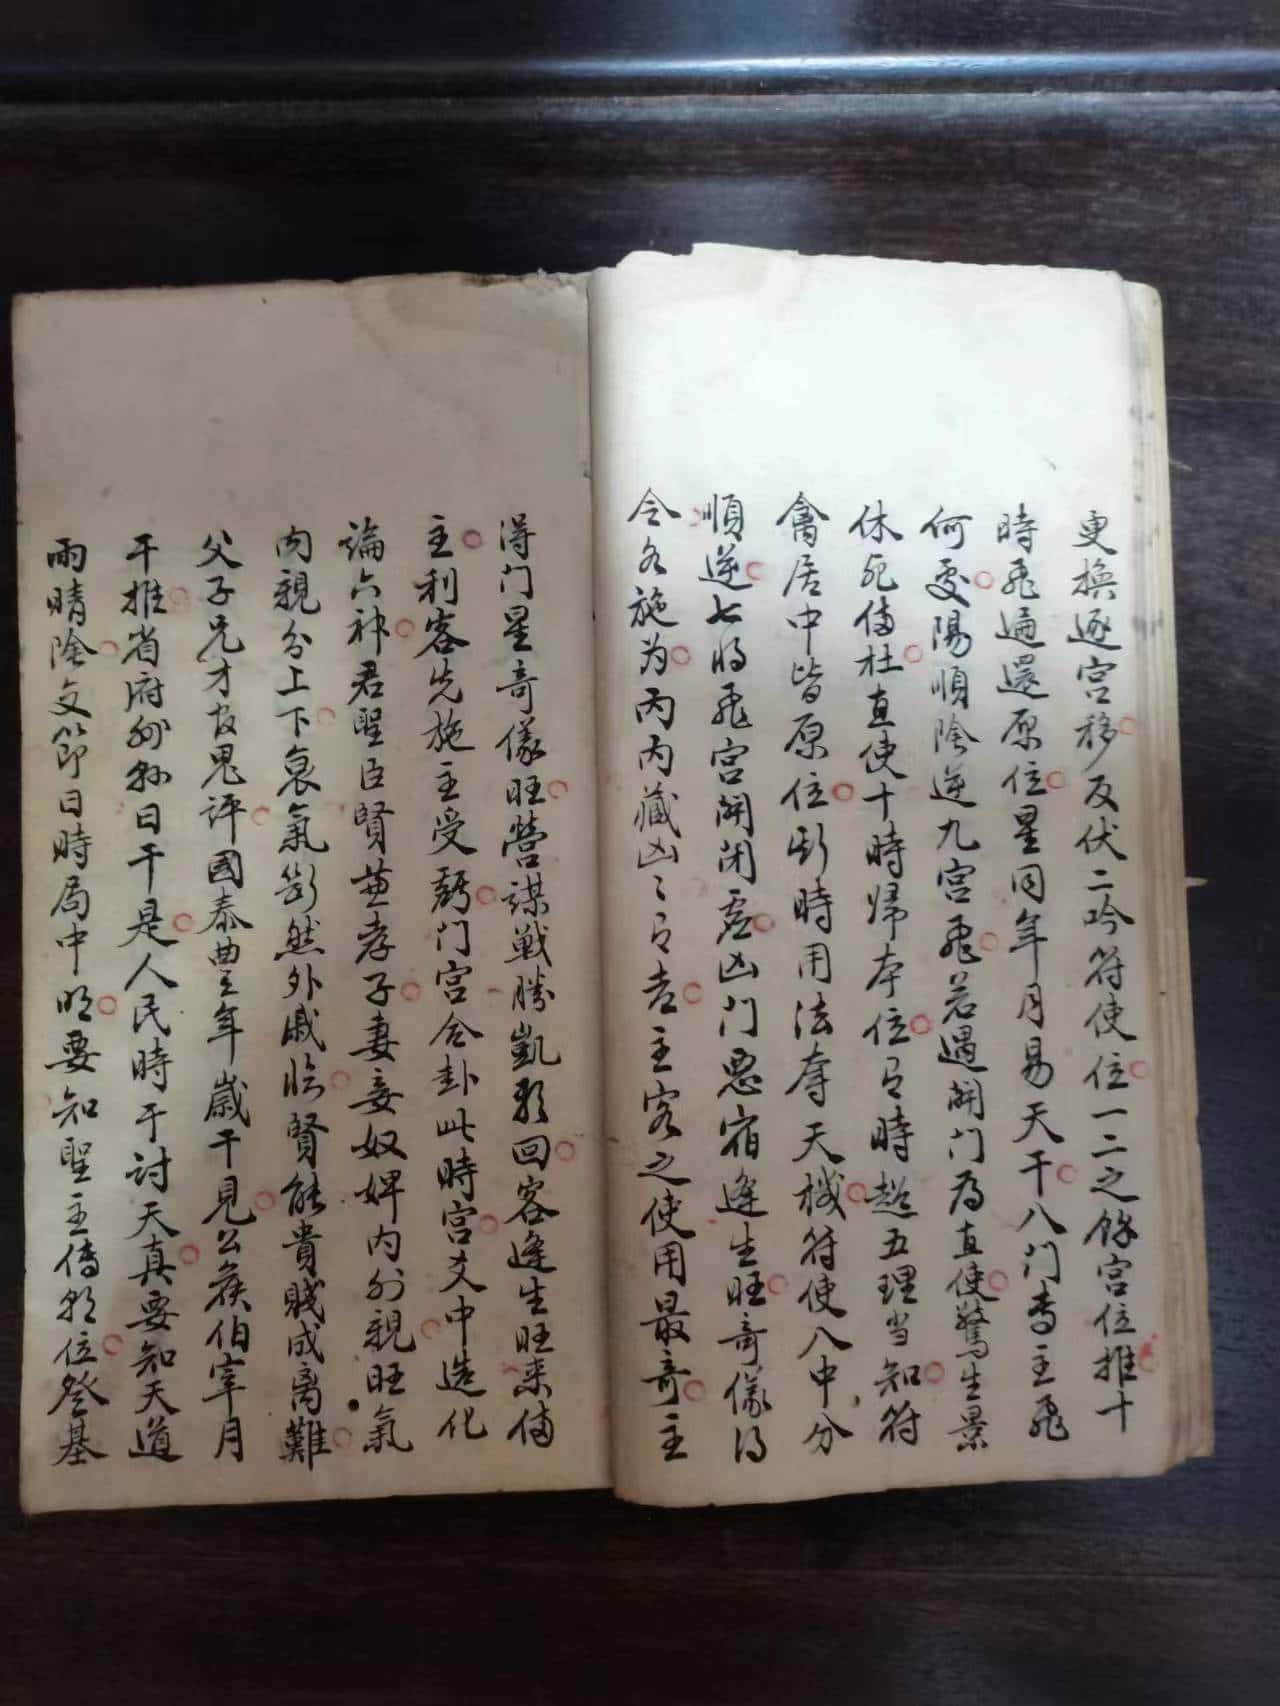 更換逐宮移反伏二吟符使位一二之餘宮位推十
時飛遍還原位星同年月易天干八门專主飛
何受陽順陰逆九宮飛若遇開门為直使驚生景
休死傷杜直使十時歸本位時超五理当知符
禽居中皆原位斯時用法奪天機符使八中分
順逆七飛宮開闭虛凶门惡宿逢生旺奇儀
令施为丙内藏凶主客之使用最奇主
得门星奇儀旺營謀戦勝凱歌回客逢生旺来傷
主利客先施主受虧门宮合卦此時宮爻中造化
論六神君聖臣賢並孝子妻妾奴婢内外親旺氣
内親分上下衰氣斷然外戚臨賢能貴賤成离難
父子兄才官鬼評國泰豊年歲干見公侯伯宰月
干推省府州縣日干是人民時干討天真要知天道
雨晴陰文節日時局中明要知聖主傳位登基